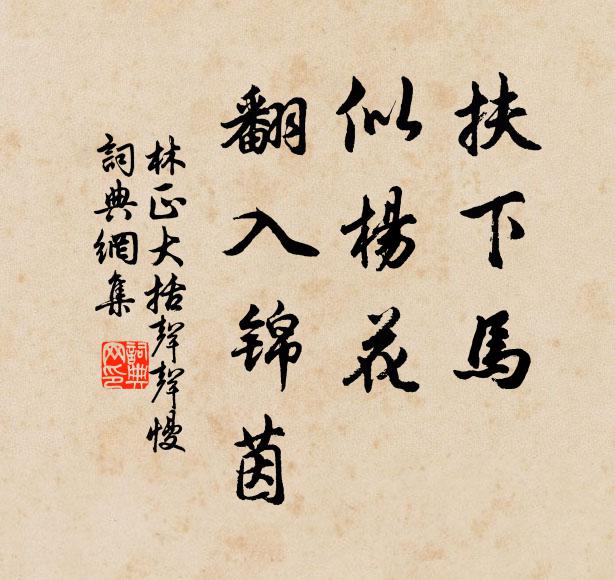 扶下馬
似楊花
翻入锦茵
林正大括聲聲慢
詞典網集
詞典
网印